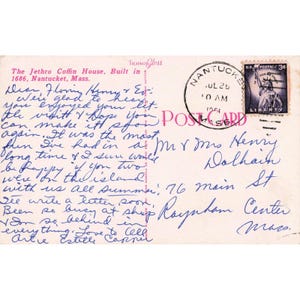 The Jethro Coffin House. Built in
1686, Nantucket, Mass.
Dear Henry &
We're glad to hear
you enjoyed your
the & hope you
can make it soon
again. It was the most
fun I've had in a
long time & I sure will
be happy if you two
were on the island
with us all summer.
I'll write a letter soon.
Been so busy at ship
& I'm so behind in
everything. Love to all
Estelle
NANTUCKET
JUL 26
10 AM
MASS.
U.S. POSTAGE 3¢
LIBERTY
POST CARD
Mr & Mrs Henry
76 Main St
Raynham Center
Mass.